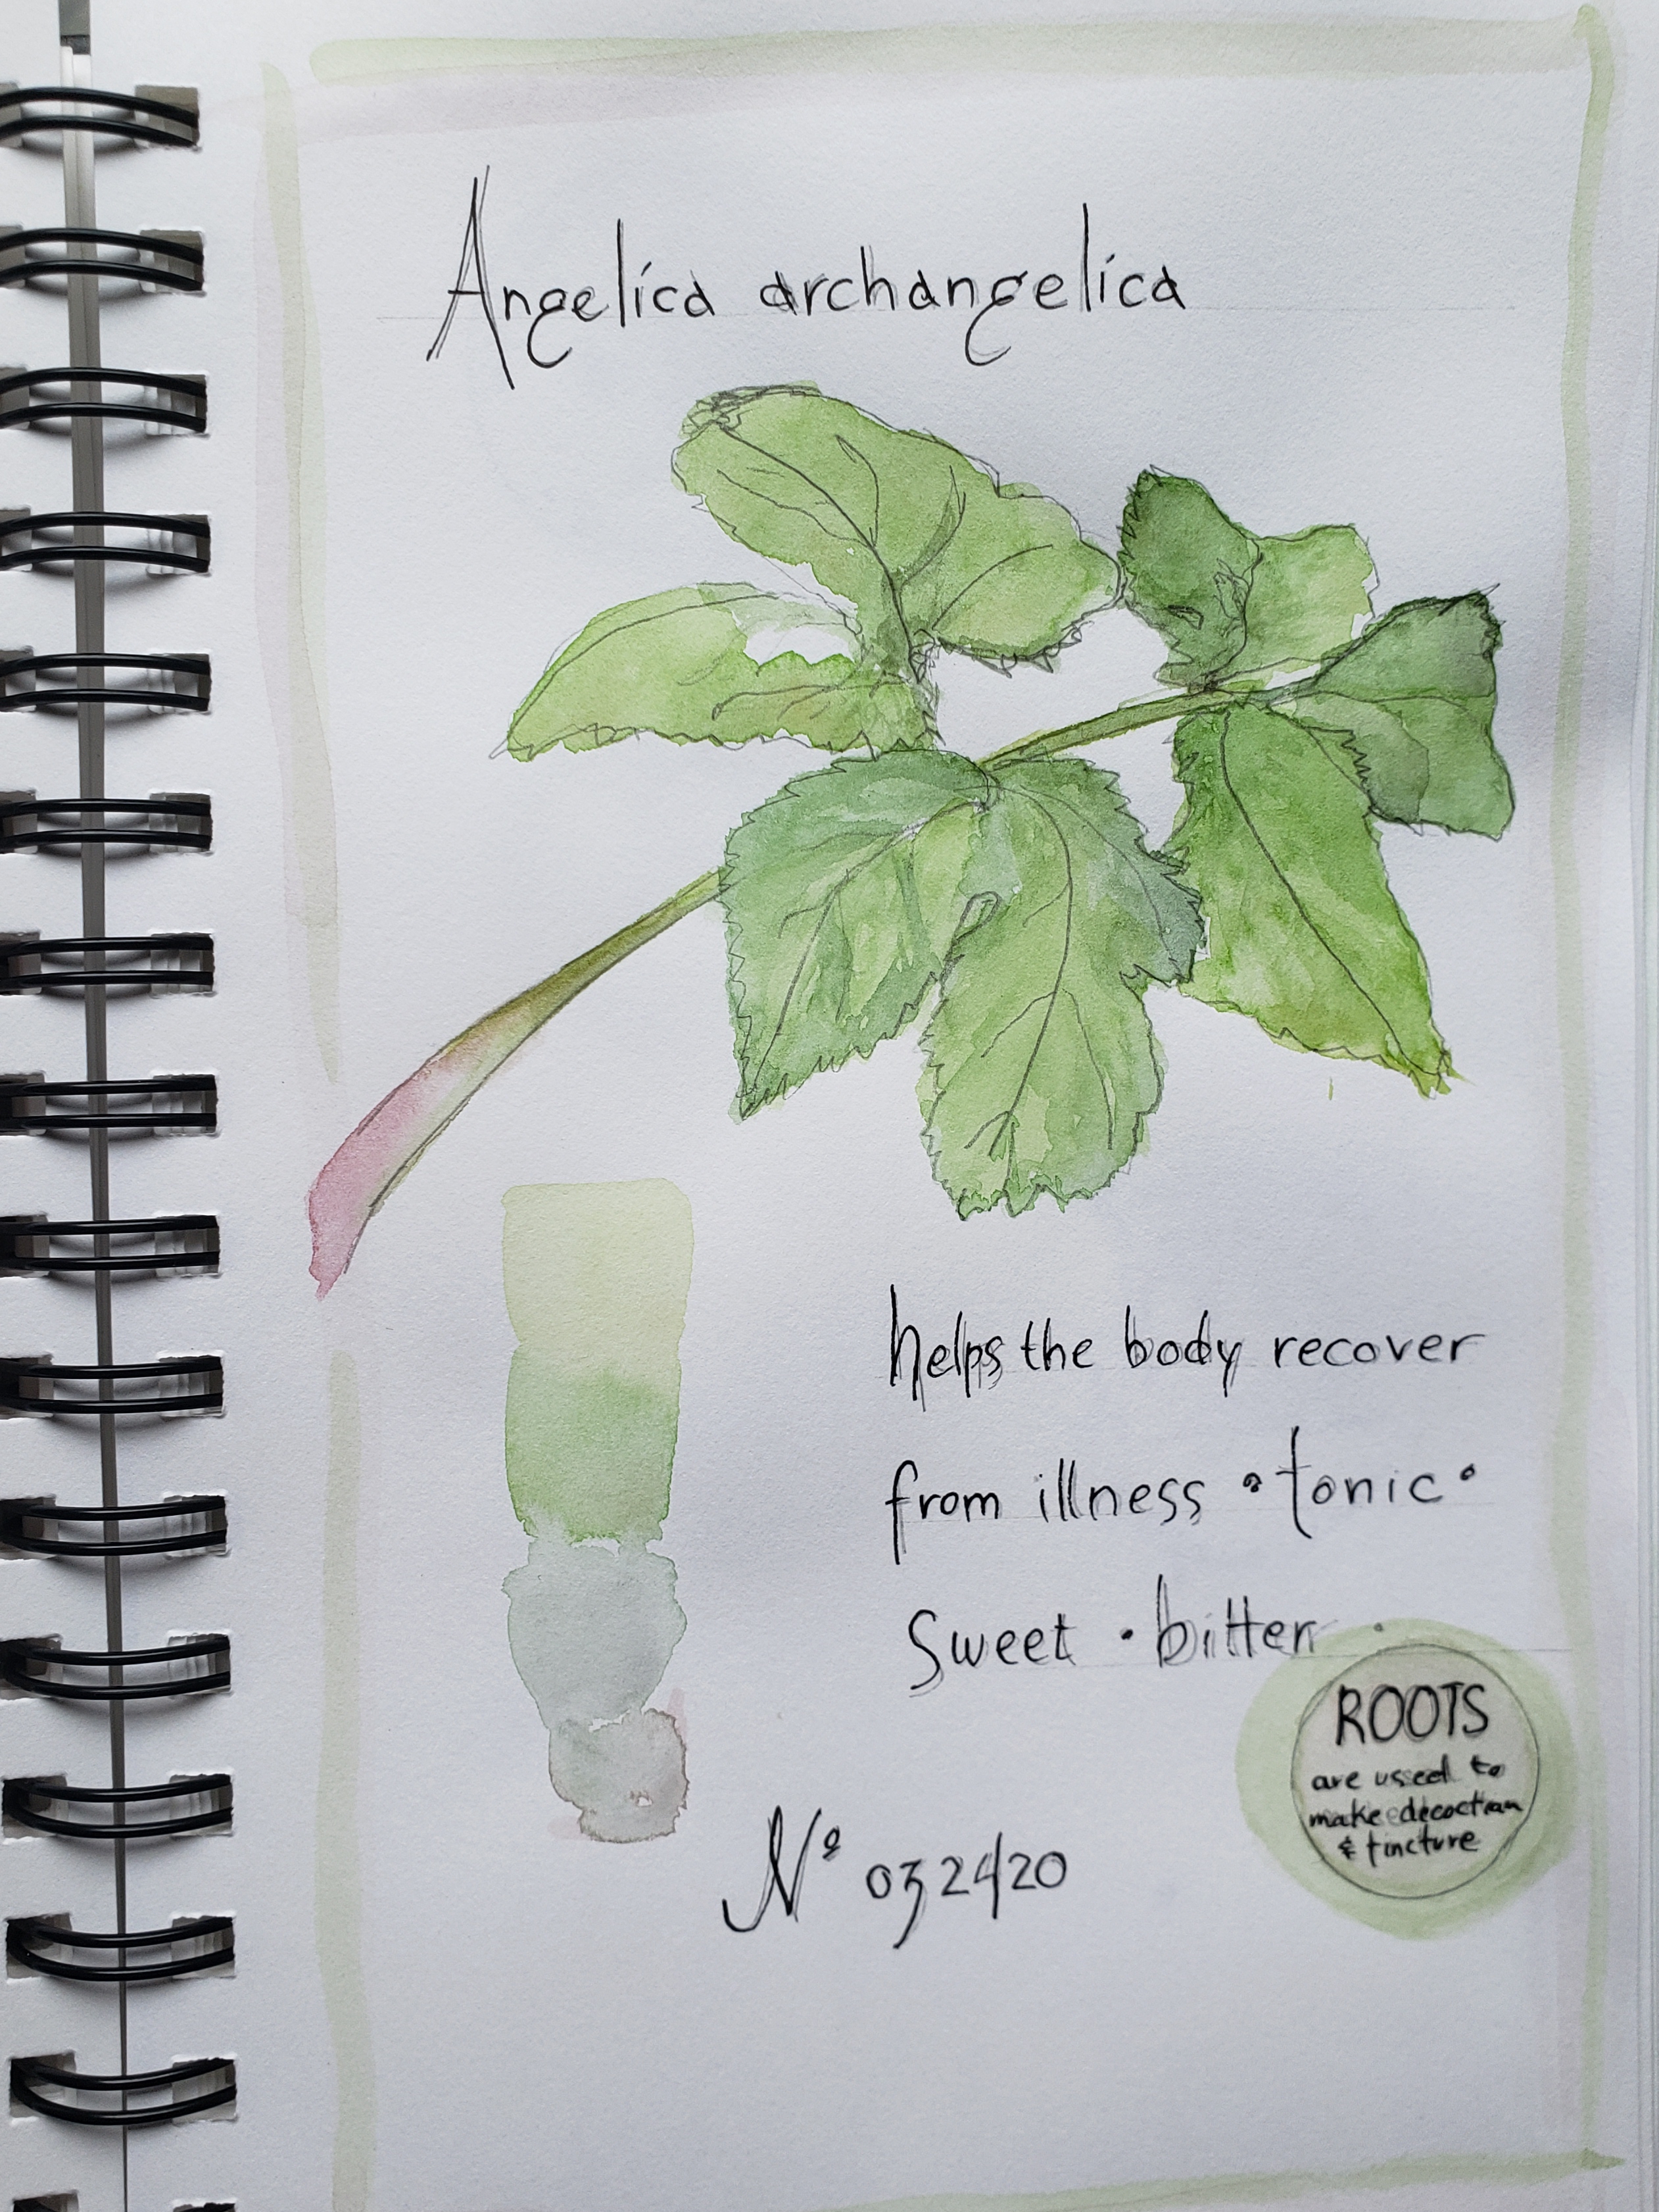 Angelica archangelica
helps the body recover
from illness • tonic •
Sweet • bitter •
ROOTS
are used to
make decoction
& tincture
Nº 032420